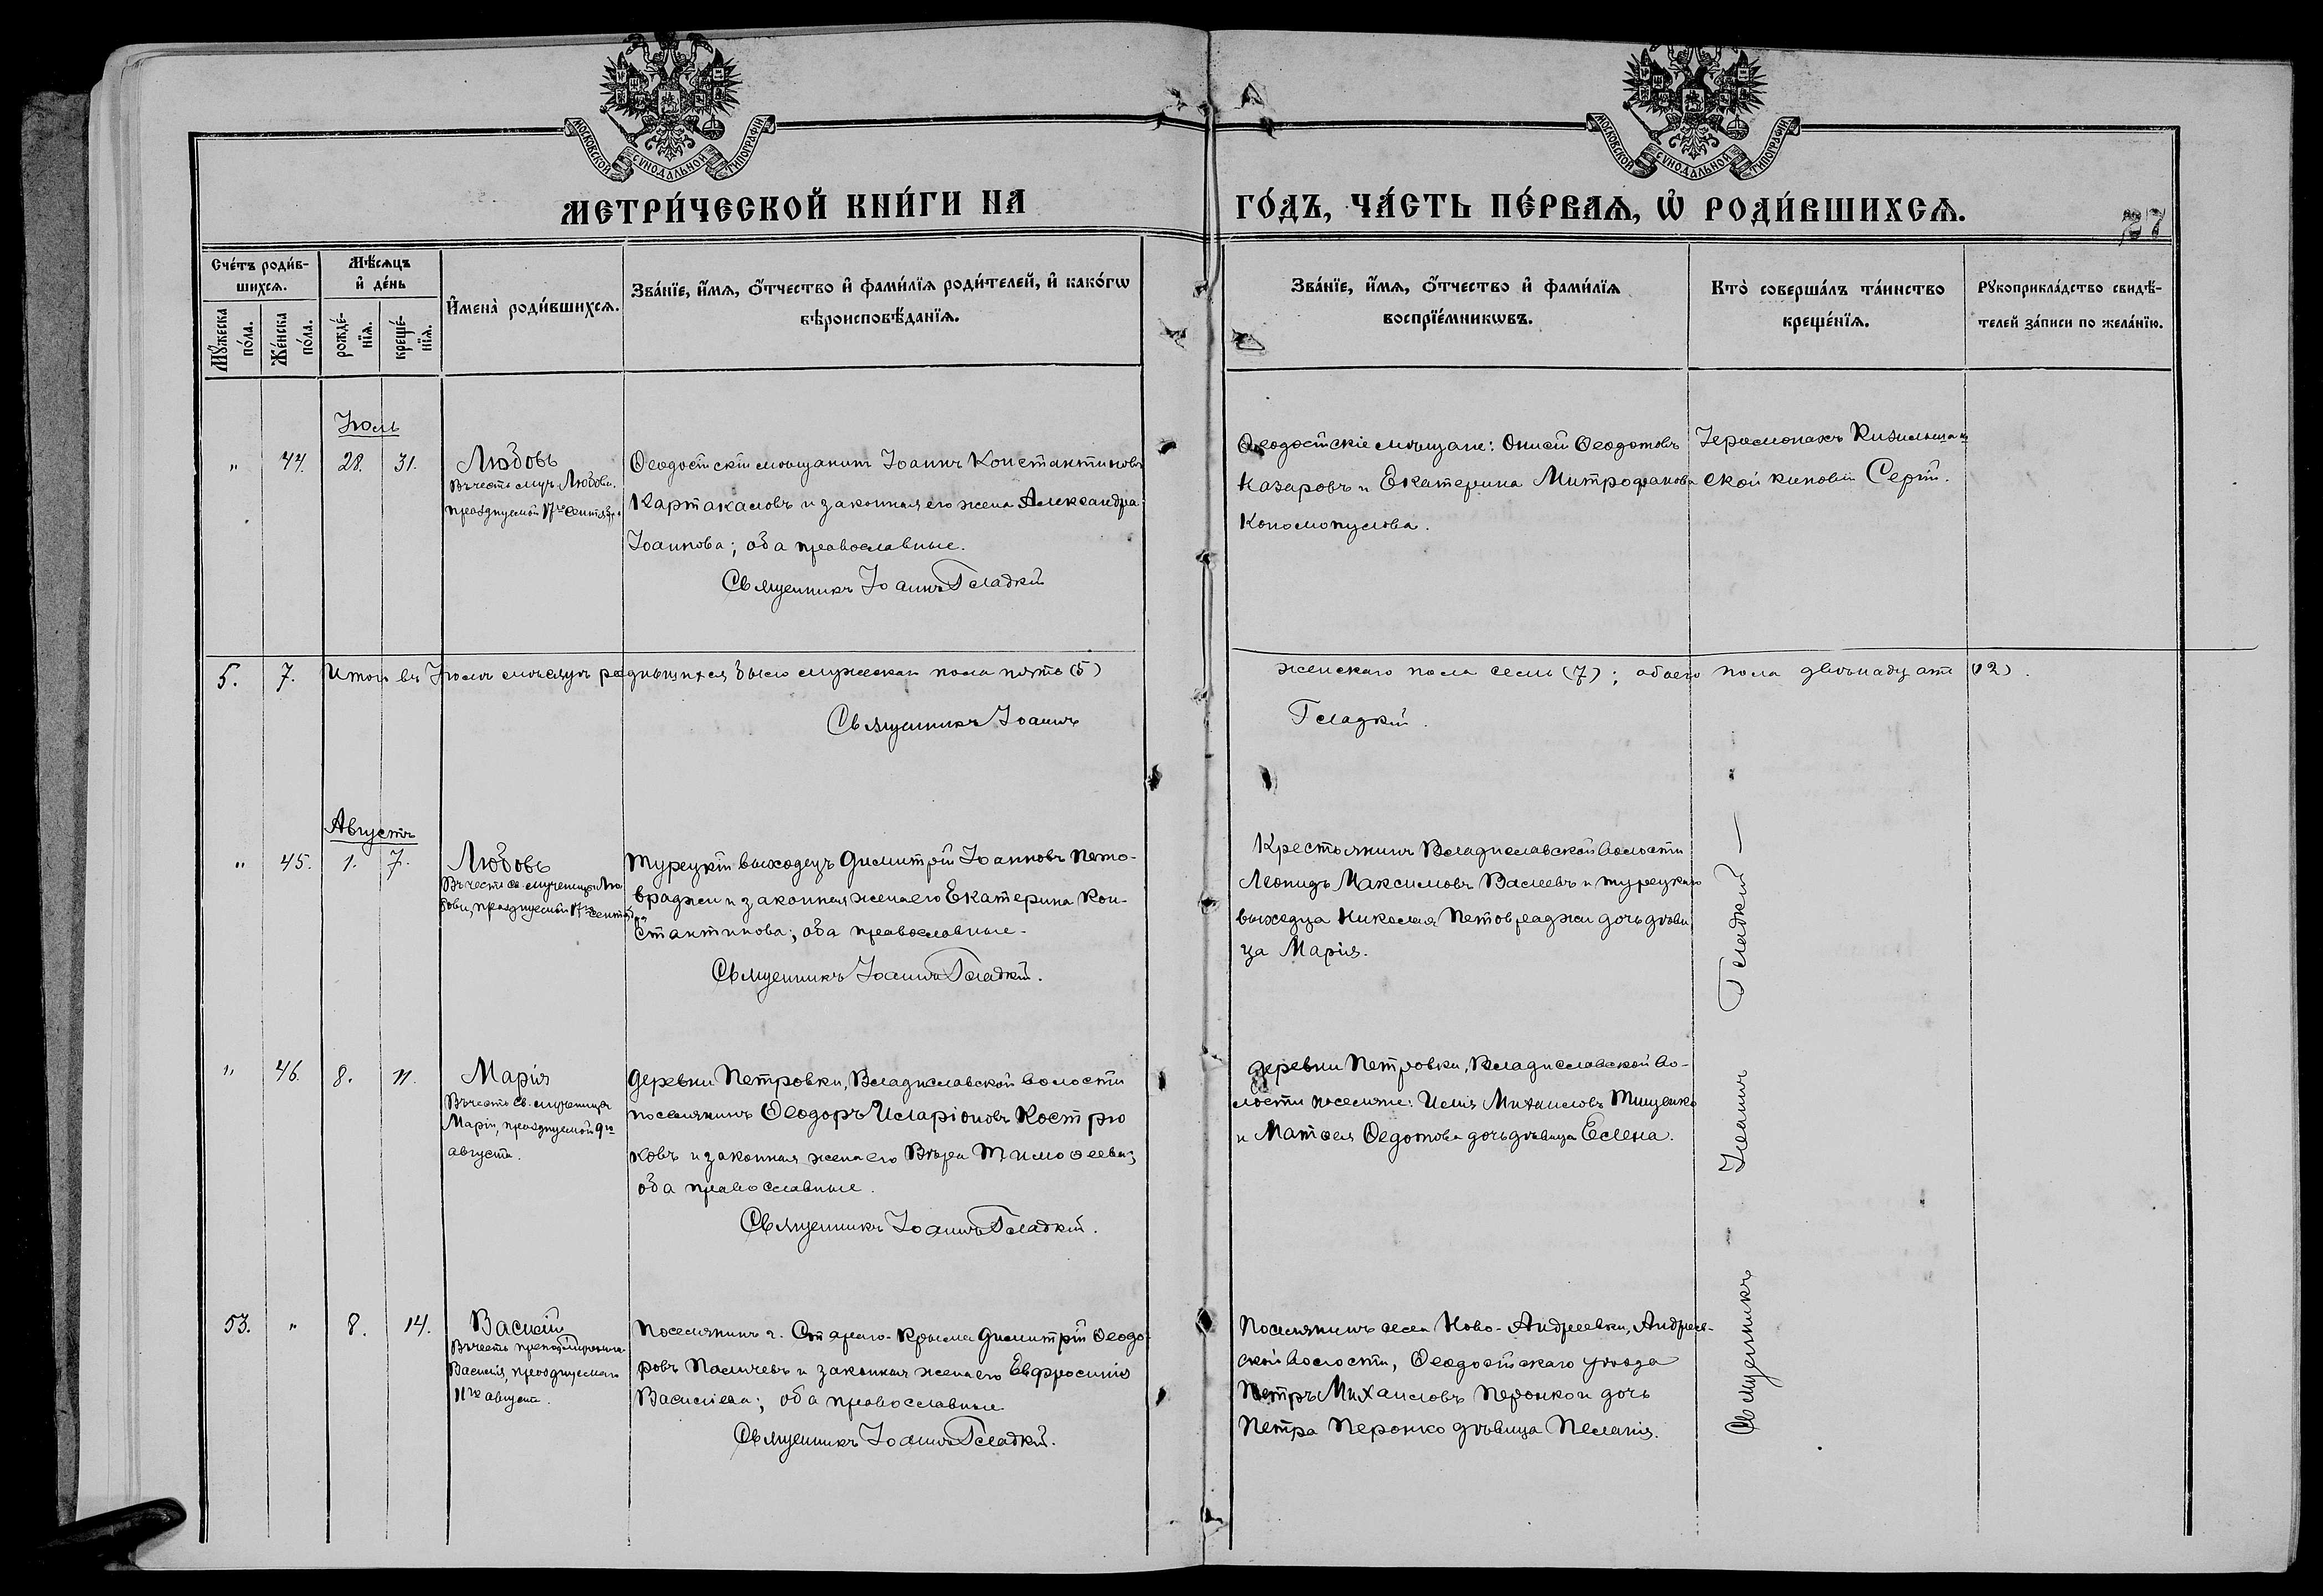 МОСКОВСКОЙ СУНОДАЛЬНОЙ ТИПОГРАФІИ
МОСКОВСКОЙ СУНОДАЛЬНОЙ ТИПОГРАФІИ
МЕТРИ́ЧЕСКОЙ КНИ́ГИ НА ГО́ДЪ, ЧА́СТЬ ПЕ́РВАЯ, Ѡ РОДИ́ВШИХСѦ.
27
Счéтъ роди́в-
шихсѧ.
Мꙋ́жеска по́ла.
Же́нска по́ла.
Мѣ́сѧцъ
и҆ де́нь
рожде́-
нїѧ.
креще́-
нїѧ.
И҆мена̀ роди́вшихсѧ.
Зва́нїе, и҆́мѧ, ѻ҆́тчество и҆ фами́лїѧ роди́телей, и҆ како́гѡ
вѣроисповѣ́данїѧ.
Зва́нїе, и҆́мѧ, ѻ҆́тчество и҆ фами́лїѧ
воспрїе́мникѡвъ.
Кто̀ соверша́лъ та́инство
креще́нїѧ.
Рꙋкоприкла́дство свидѣ́-
телей за́писи по жела́нїю.
Іюль
" 44. 28. 31.
Любовь
Въ честь муч. Любови,
празднуемой 17го сентяб.
Ѳеодосійскій мѣщанинъ Іоаннъ Константиновъ
Картакаловъ и законная его жена Александра
Іоаннова; оба православные.
Священникъ Іоаннъ Гладкій
Ѳеодосійскіе мѣщане: Онисій Ѳеодотовъ
Назаровъ и Екатерина Митрофанова
Кономопулова.
Іеромонахъ Кизильташ
ской киновіи Сергій.
5. 7. Итого въ Іюлѣ мѣсяцѣ родившихся было мужескаго пола пять (5) женскаго пола семь (7); обоего пола двѣнадцать (12).
Священникъ Іоаннъ Гладкій.
Августъ
" 45. 1. 7.
Любовь
Въ честь св. мученицы Лю-
бови, празднуемой 17го сентября
Турецкій выходецъ Димитрій Іоанновъ Пето-
враджи и законная жена его Екатерина Кон-
стантинова; оба православные.
Священникъ Іоаннъ Гладкій.
Крестьянинъ Владиславской волости
Леонидъ Максимовъ Васлевъ и турецкаго
выходца Николая Петовраджи дочь дѣви
ца Марія.
" 46. 8. 11.
Марія
Въ честь св. мученицы
Маріи, празднуемой 9го
августа.
Деревни Петровки, Владиславской волости
поселянинъ Ѳеодоръ Иларіоновъ Костро
ковъ и законная жена его Вѣра Тимоѳеева;
оба православные.
Священникъ Іоаннъ Гладкій.
Деревни Петровки, Владиславской во-
лости поселяне: Илія Михаиловъ Тищенко
и Матвея Ѳедотова дочь дѣвица Елена.
53. " 8. 14.
Василій
Въ честь преподобномученика
Василія, празднуемаго
11го августа.
Поселянинъ г. Стараго-Крыма Димитрій Ѳеодо-
ровъ Паличевъ и законная жена его Евфросинія
Василіева; оба православные
Священникъ Іоаннъ Гладкій.
Поселянинъ села Ново-Андреевки, Андреев-
ской волости, Ѳеодосійскаго уѣзда
Петръ Михаиловъ Перонко и дочь
Петра Перонко дѣвица Пелагія.
Священникъ — Іоаннъ Гладкій —